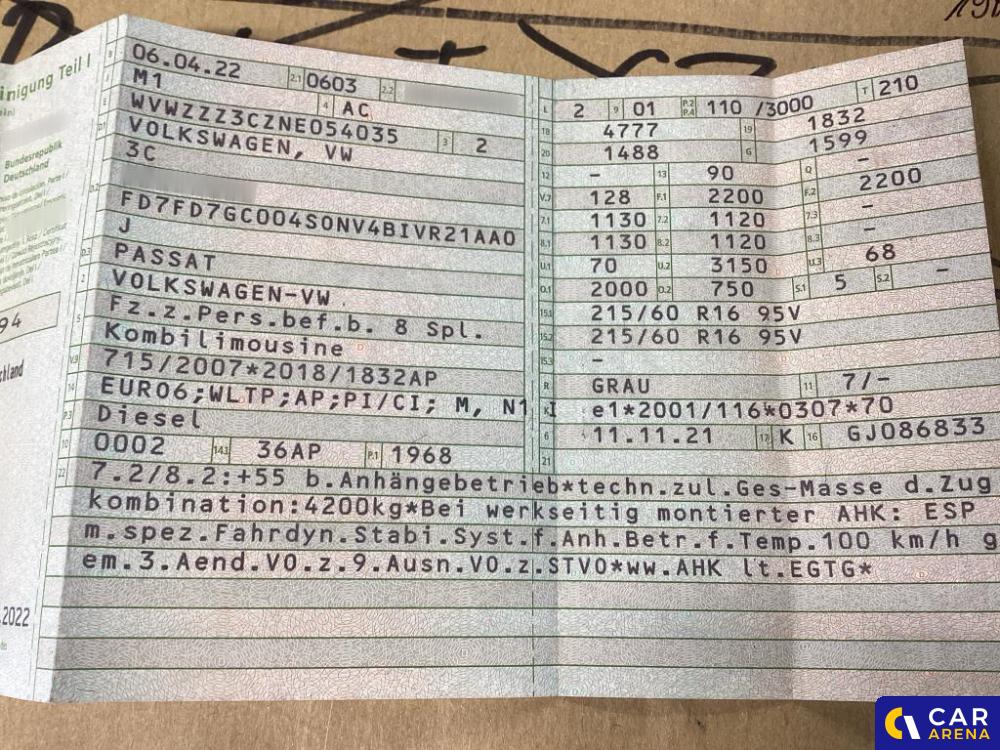 nigung Teil I
Bundesrepublik
Deutschland
94
chland
.2022
B 06.04.22 2.1 0603 2.2
J M1 4 AC
E WVWZZZ3CZNE054035 3 2
D.1 VOLKSWAGEN, VW
3C
D.2
FD7FD7GC004S0NV4BIVR21AA0
J
D.3 PASSAT
2 VOLKSWAGEN-VW
5 Fz.z.Pers.bef.b. 8 Spl.
Kombilimousine
V.9 715/2007*2018/1832AP
14 EURO6;WLTP;AP;PI/CI; M, N1 I
P.3 Diesel
10 0002 14.1 36AP P.1 1968
L 2 9 01 P.2 P.4 110 /3000 T 210
18 4777 19 1832
20 1488 G 1599
12 – 13 90 Q –
V.7 128 F.1 2200 F.2 2200
7.1 1130 7.2 1120 7.3 –
8.1 1130 8.2 1120 8.3 –
U.1 70 U.2 3150 U.3 68
O.1 2000 O.2 750 S.1 5 S.2 –
15.1 215/60 R16 95V
15.2 215/60 R16 95V
15.3 –
R GRAU 11 7/–
K e1*2001/116*0307*70
6 11.11.21 17 K 16 GJ086833
21
22 7.2/8.2:+55 b.Anhängebetrieb*techn.zul.Ges-Masse d.Zug
kombination:4200kg*Bei werkseitig montierter AHK: ESP
m.spez.Fahrdyn.Stabi.Syst.f.Anh.Betr.f.Temp.100 km/h g
em.3.Aend.VO.z.9.Ausn.VO.z.STVO*ww.AHK lt.EGTG*
CAR
ARENA